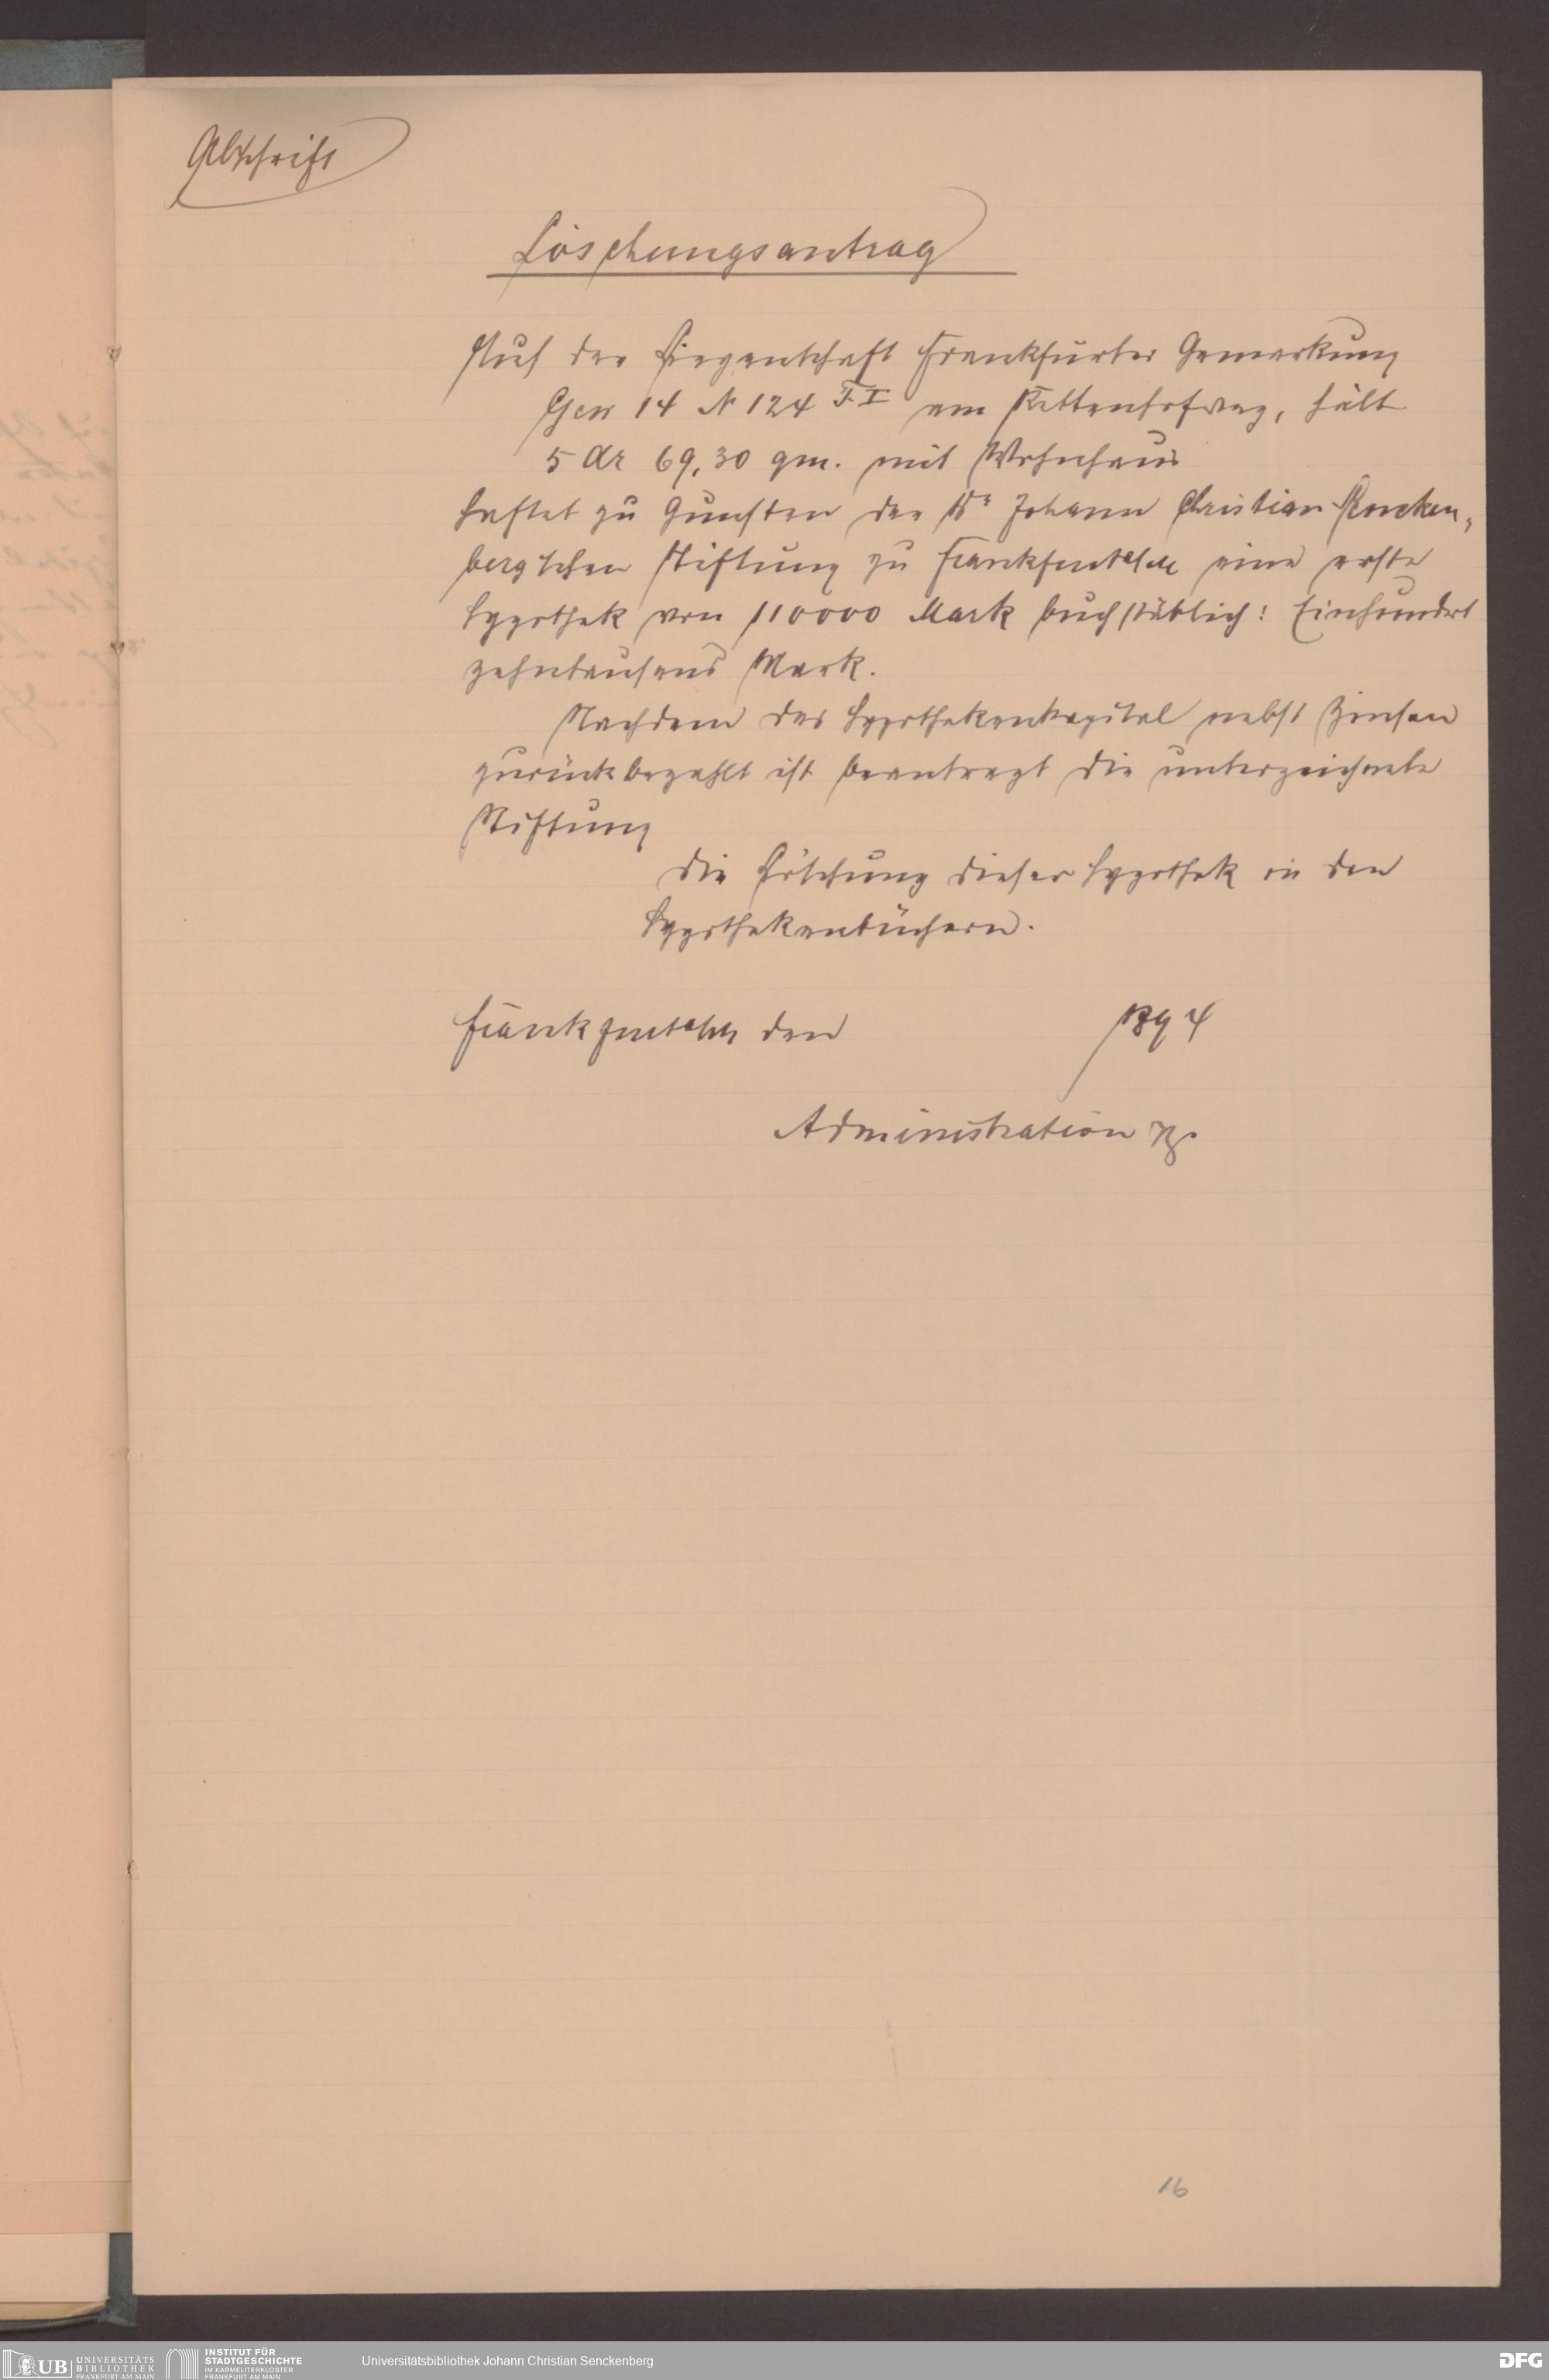 Abschrift
Löschungsantrag
Auf der Liegenschaft Frankfurter Gemarkung
Gew 14 N 124 F. I am Kettenhofweg, hält
5 Ar 69,30 qm. mit Wohnhaus
haftet zu Gunsten der Dr Johann Christian Sencken„
berg'schen Stiftung zu Frankfurt a/M eine erste
Hypothek von 110000 Mark buchstäblich: Einhundert
zehntausend Mark.
Nachdem das Hypothekenkapital nebst Zinsen
zurückbezahlt ist beantragt die unterzeichnete
Stiftung
die Löschung dieser Hypothek in den
Hypothekenbüchern.
Frankfurt a/M den 1894
Administration pp.
16
UB UNIVERSITÄTS BIBLIOTHEK FRANKFURT AM MAIN
INSTITUT FÜR STADTGESCHICHTE IM KARMELITERKLOSTER FRANKFURT AM MAIN
Universitätsbibliothek Johann Christian Senckenberg
DFG